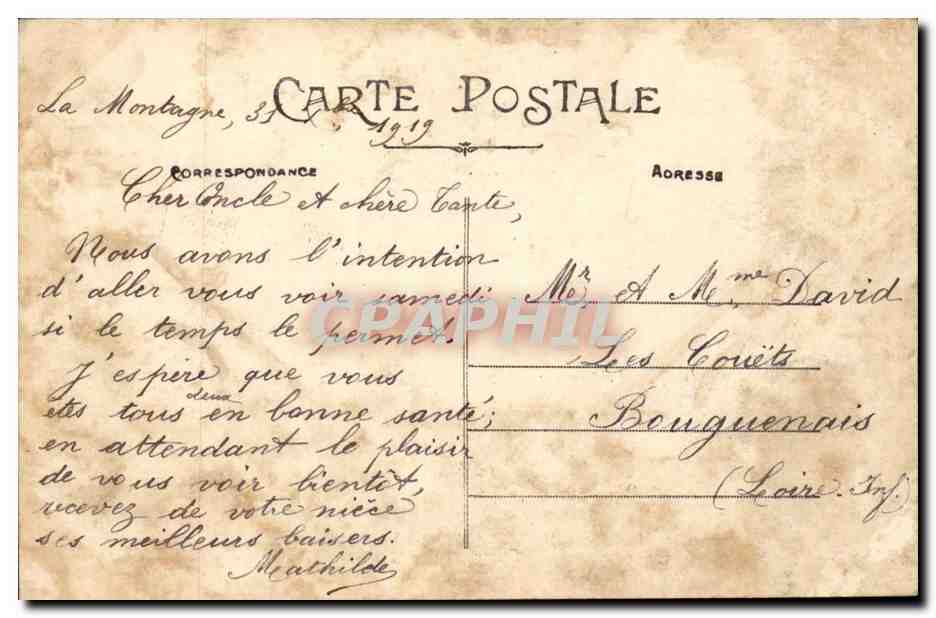 CARTE POSTALE
La Montagne, 31 Xbre 1919
CORRESPONDANCE
Cher Oncle et chère Tante,
Nous avons l'intention
d'aller vous voir samedi
si le temps le permet.
J'espère que vous
etes tous deux en bonne santé;
en attendant le plaisir
de vous voir bientôt,
recevez de votre nièce
ses meilleurs baisers.
Mathilde
ADRESSE
Mr. et Mme. David
Les Couëts
Bouguenais
(Loire-Inf.)
CPAPHIL